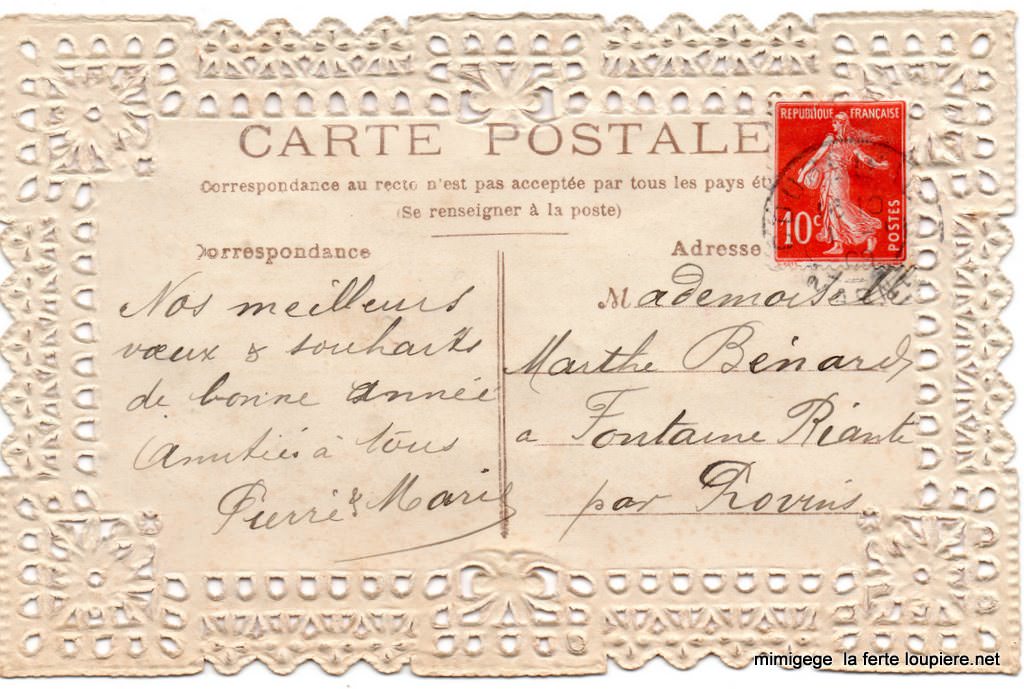 CARTE POSTALE
Correspondance au recto n'est pas acceptée par tous les pays ét
(Se renseigner à la poste)
Correspondance
Nos meilleurs
vœux & souhaits
de bonne année
Amitiés à tous
Pierre & Marie
RÉPUBLIQUE FRANÇAISE
10c
POSTES
Adresse
Mademoiselle
Marthe Bénard
a Fontaine Riante
par Provins
mimigege la ferte loupiere.net